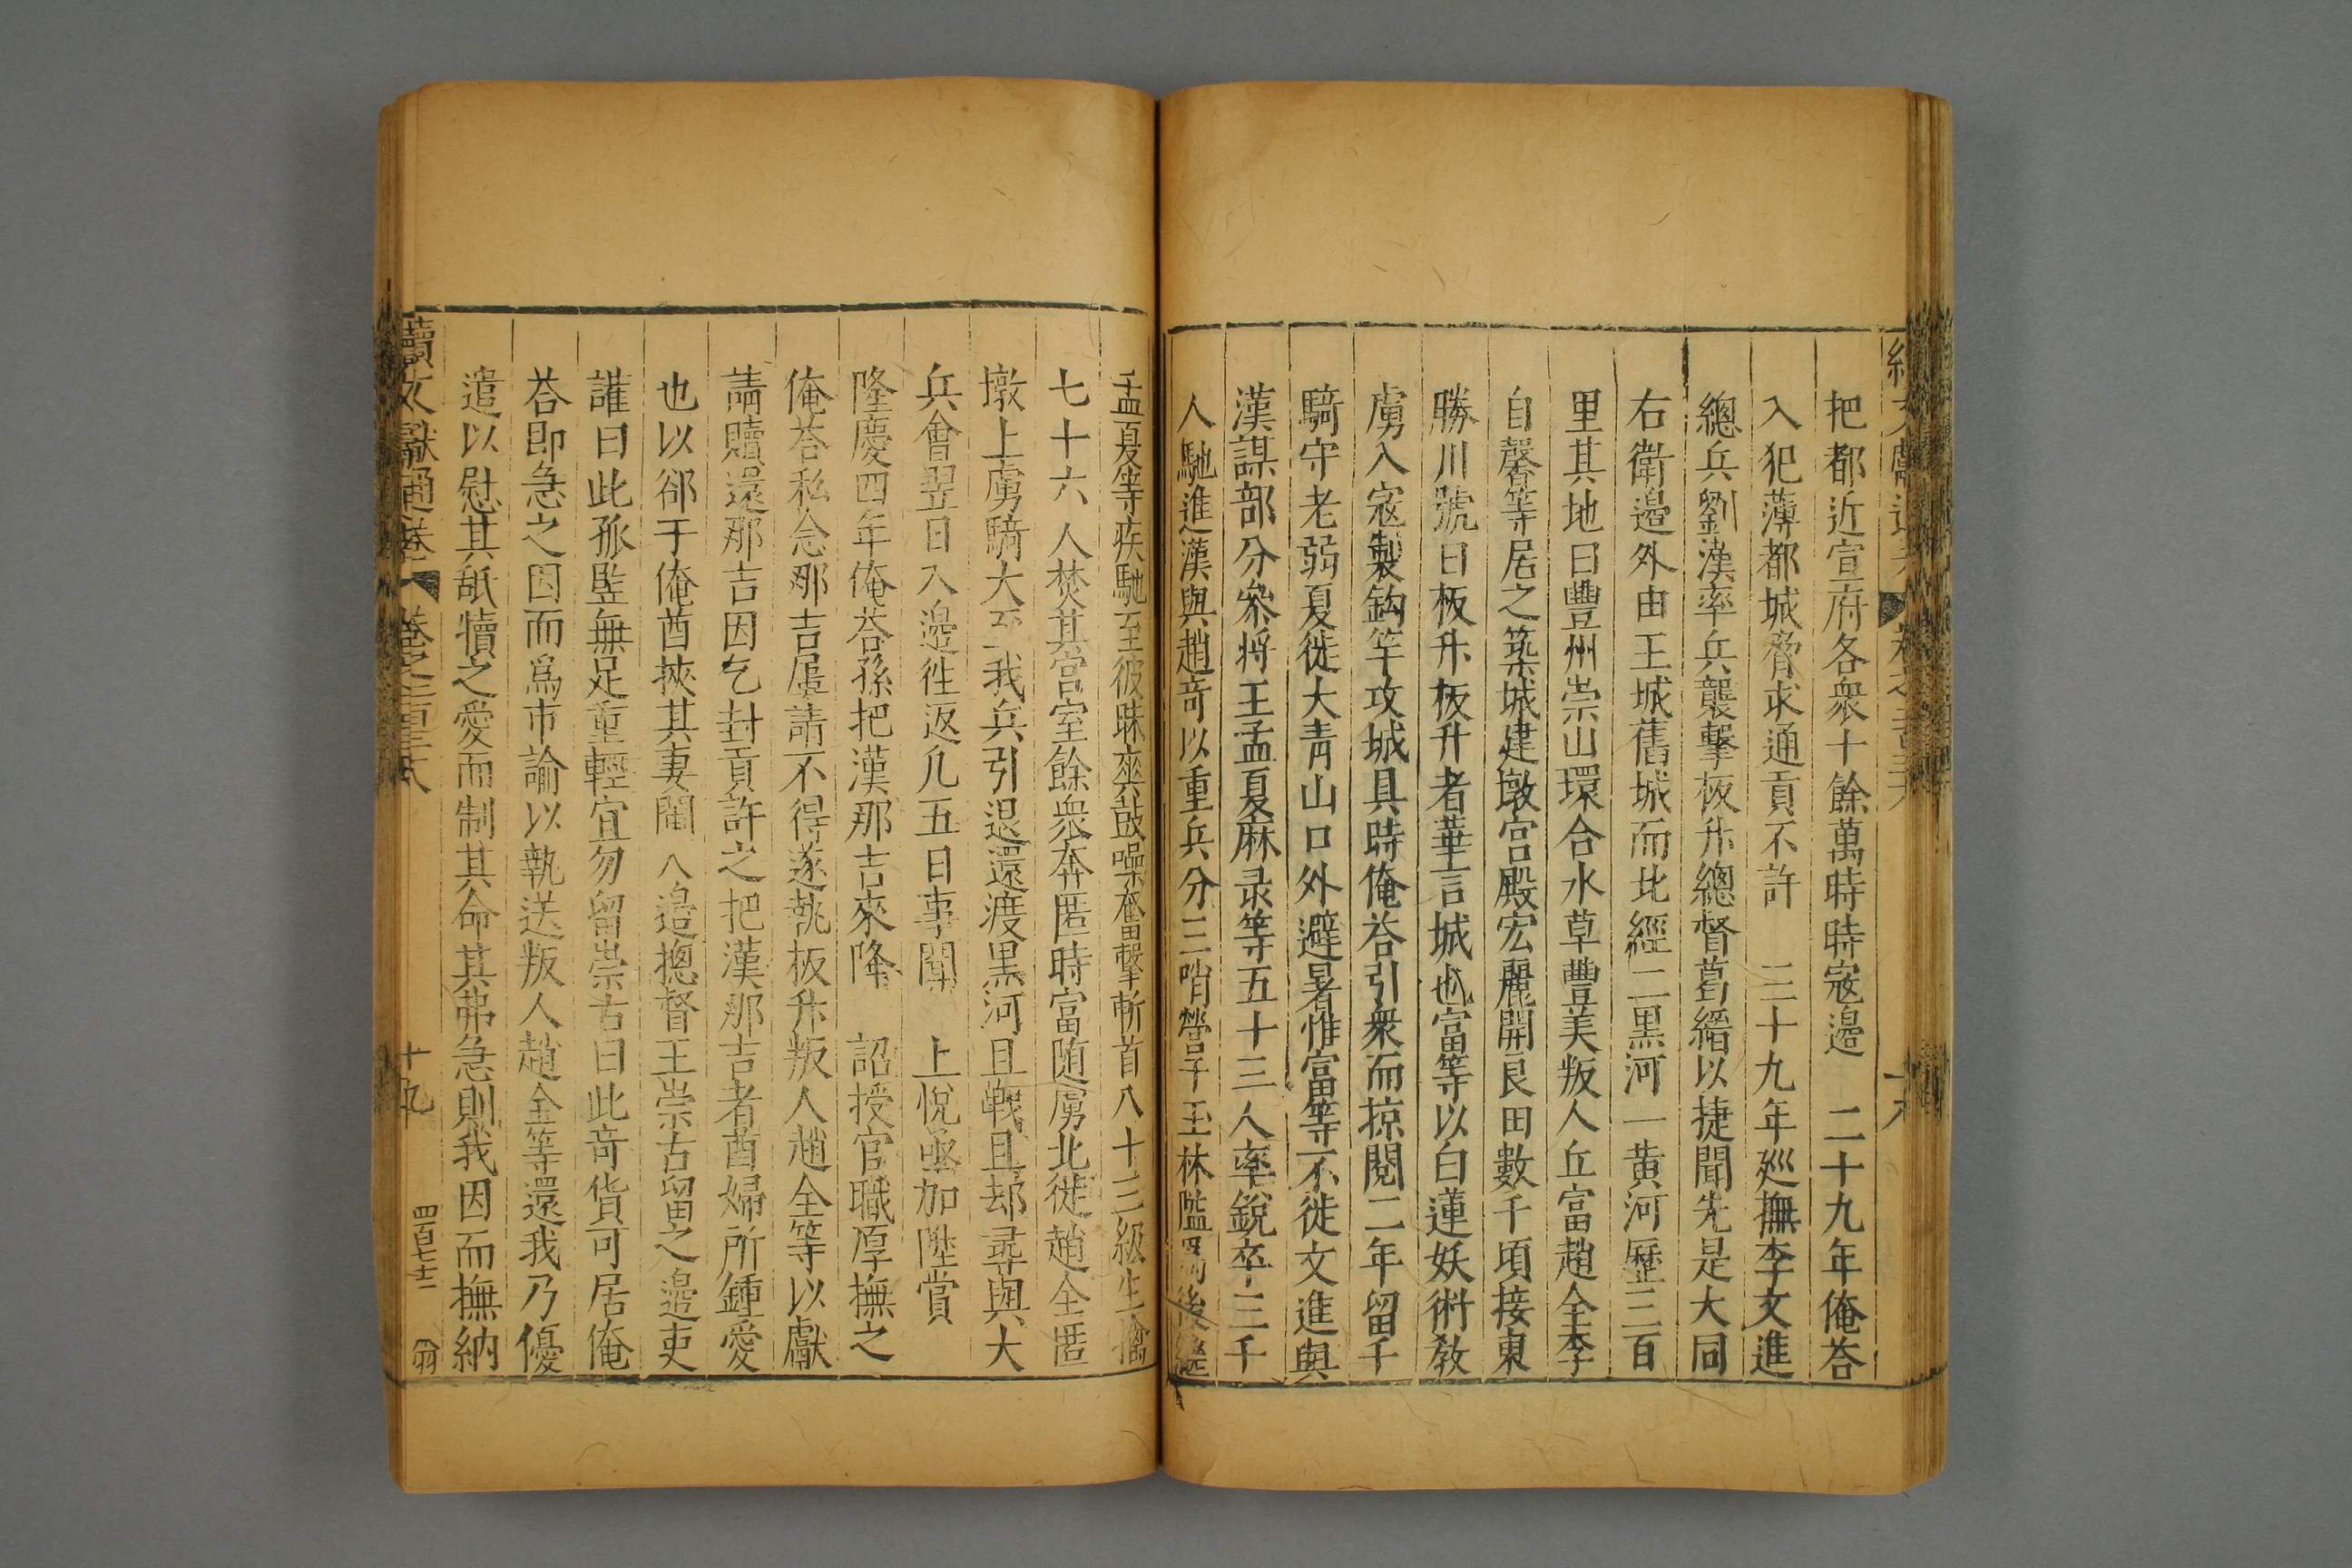 把都近宣府各衆十餘萬時時寇邊　二十九年俺荅
入犯薄都城脅求通貢不許　三十九年廵撫李文進
總兵劉漢率兵襲擊板升總督葛縉以捷聞先是大同
右衛邊外由王城舊城而北經二黑河一黄河歷三百
里其地曰豐州崇山環合水草豐美叛人丘富趙全李
自馨等居之築城建墩宫殿宏麗開良田數千頃接東
勝川號曰板升板升者華言城也富等以白蓮妖術教
虜入寇製鈎竿攻城具時俺荅引衆而掠閱二年留千
騎守老弱夏徙大青山口外避暑惟富等不徙文進與
漢謀部分叅將王孟夏麻录等五十三人率銳卒三千
人馳進漢與趙竒以重兵分三哨營于玉林隘爲後繼
孟夏等疾馳至彼昧爽鼓噪奮擊斬首八十三級生擒
七十六人焚其宫室餘衆奔匿時富随虜北徙趙全匿
墩上虜騎大至我兵引退還渡黑河且戰且却尋與大
兵會翌日入邊徃返凡五日事聞　上悅亟加陞賞
隆慶四年俺荅孫把漢那吉來降　詔授官職厚撫之
俺荅私念那吉屢請不得遂執板升叛人趙全等以獻
請贖還那吉因乞封貢許之把漢那吉者酋婦所鍾愛
也以郤于俺酋挾其妻闌入邊摠督王崇古留之邊吏
讙曰此孤豎無足重輕宜勿留崇古曰此竒貨可居俺
荅即急之因而爲市諭以執送叛人趙全等還我乃優
遣以慰其舐犢之愛而制其命其弗急則我因而撫納
續文獻通考　卷之二百三十八　十九　四百七十二　翁